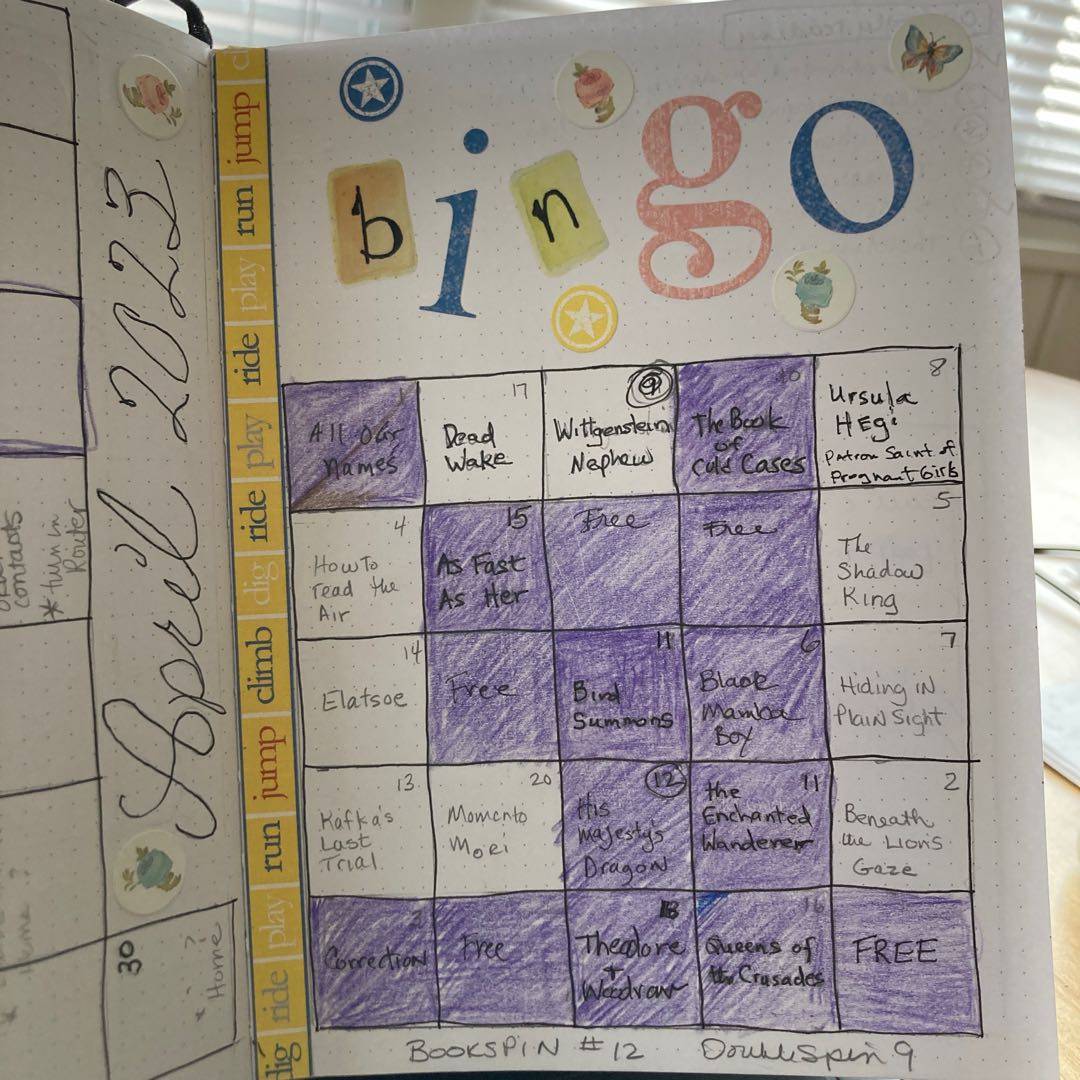 bingo
April 2023
jump
run
play
ride
play
ride
dig
climb
jump
run
play
ride
dig
contacts
* turn in
Router
30
Home?
1
All Our
Names
17
Dead
Wake
9
Wittgenstein
Nephew
10
The Book
of
Cold Cases
8
Ursula
Hegi
Patron Saint of
Pregnant Girls
4
How To
read the
Air
15
As Fast
As Her
Free
Free
5
The
Shadow
King
14
Elatsoe
Free
Bird
Summons
6
Black
Mamba
Boy
7
Hiding in
Plain Sight
13
Kafka's
Last
Trial
20
Momento
Mori
12
His
majesty's
Dragon
11
the
Enchanted
Wanderer
2
Beneath
the Lion's
Gaze
3
Correction
Free
18
Theodore
+
Woodrow
16
Queens of
the Crusades
FREE
BOOKSPIN #12 DoubleSpin 9